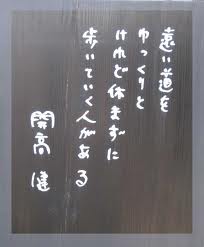 遠い道を
ゆっくりと
けれど休まずに
歩いていく人がある
開高 健